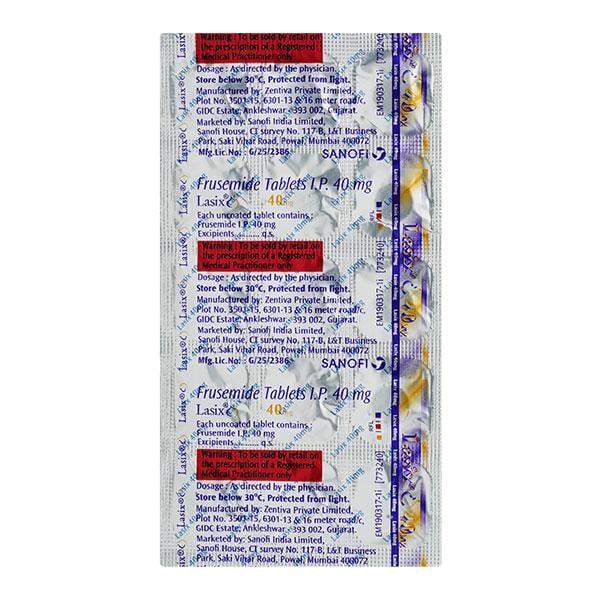 Warning : To be sold by retail on
the prescription of a Registered
Medical Practitioner only
Dosage : As directed by the physician.
Store below 30°C, Protected from light.
Manufactured by: Zentiva Private Limited,
Plot No. 3503-15, 6301-13 & 16 meter road/c,
GIDC Estate, Ankleshwar- 393 002, Gujarat.
Marketed by: Sanofi India Limited,
Sanofi House, CT survey No. 117-B, L&T Business
Park, Saki Vihar Road, Powai, Mumbai 400072
Mfg.Lic.No.: G/25/2386 SANOFI
Frusemide Tablets I.P. 40 mg
Lasix® 40mg
Each uncoated tablet contains :
Frusemide I.P. 40 mg
Excipients.......... q.s.
Warning : To be sold by retail on
the prescription of a Registered
Medical Practitioner only
Dosage : As directed by the physician.
Store below 30°C, Protected from light.
Manufactured by: Zentiva Private Limited,
Plot No. 3503-15, 6301-13 & 16 meter road/c,
GIDC Estate, Ankleshwar- 393 002, Gujarat.
Marketed by: Sanofi India Limited,
Sanofi House, CT survey No. 117-B, L&T Business
Park, Saki Vihar Road, Powai, Mumbai 400072
Mfg.Lic.No.: G/25/2386 SANOFI
Frusemide Tablets I.P. 40 mg
Lasix® 40mg
Each uncoated tablet contains :
Frusemide I.P. 40 mg
Excipients.......... q.s.
Warning : To be sold by retail on
the prescription of a Registered
Medical Practitioner only
Dosage : As directed by the physician.
Store below 30°C, Protected from light.
Manufactured by: Zentiva Private Limited,
Plot No. 3503-15, 6301-13 & 16 meter road/c,
GIDC Estate, Ankleshwar- 393 002, Gujarat.
Marketed by: Sanofi India Limited,
Sanofi House, CT survey No. 117-B, L&T Business
Park, Saki Vihar Road, Powai, Mumbai 400072
EM190317-1i [773240]
RFL
EM190317-1i [773240]
RFL
EM190317-1i [773240]
Lasix 40mg